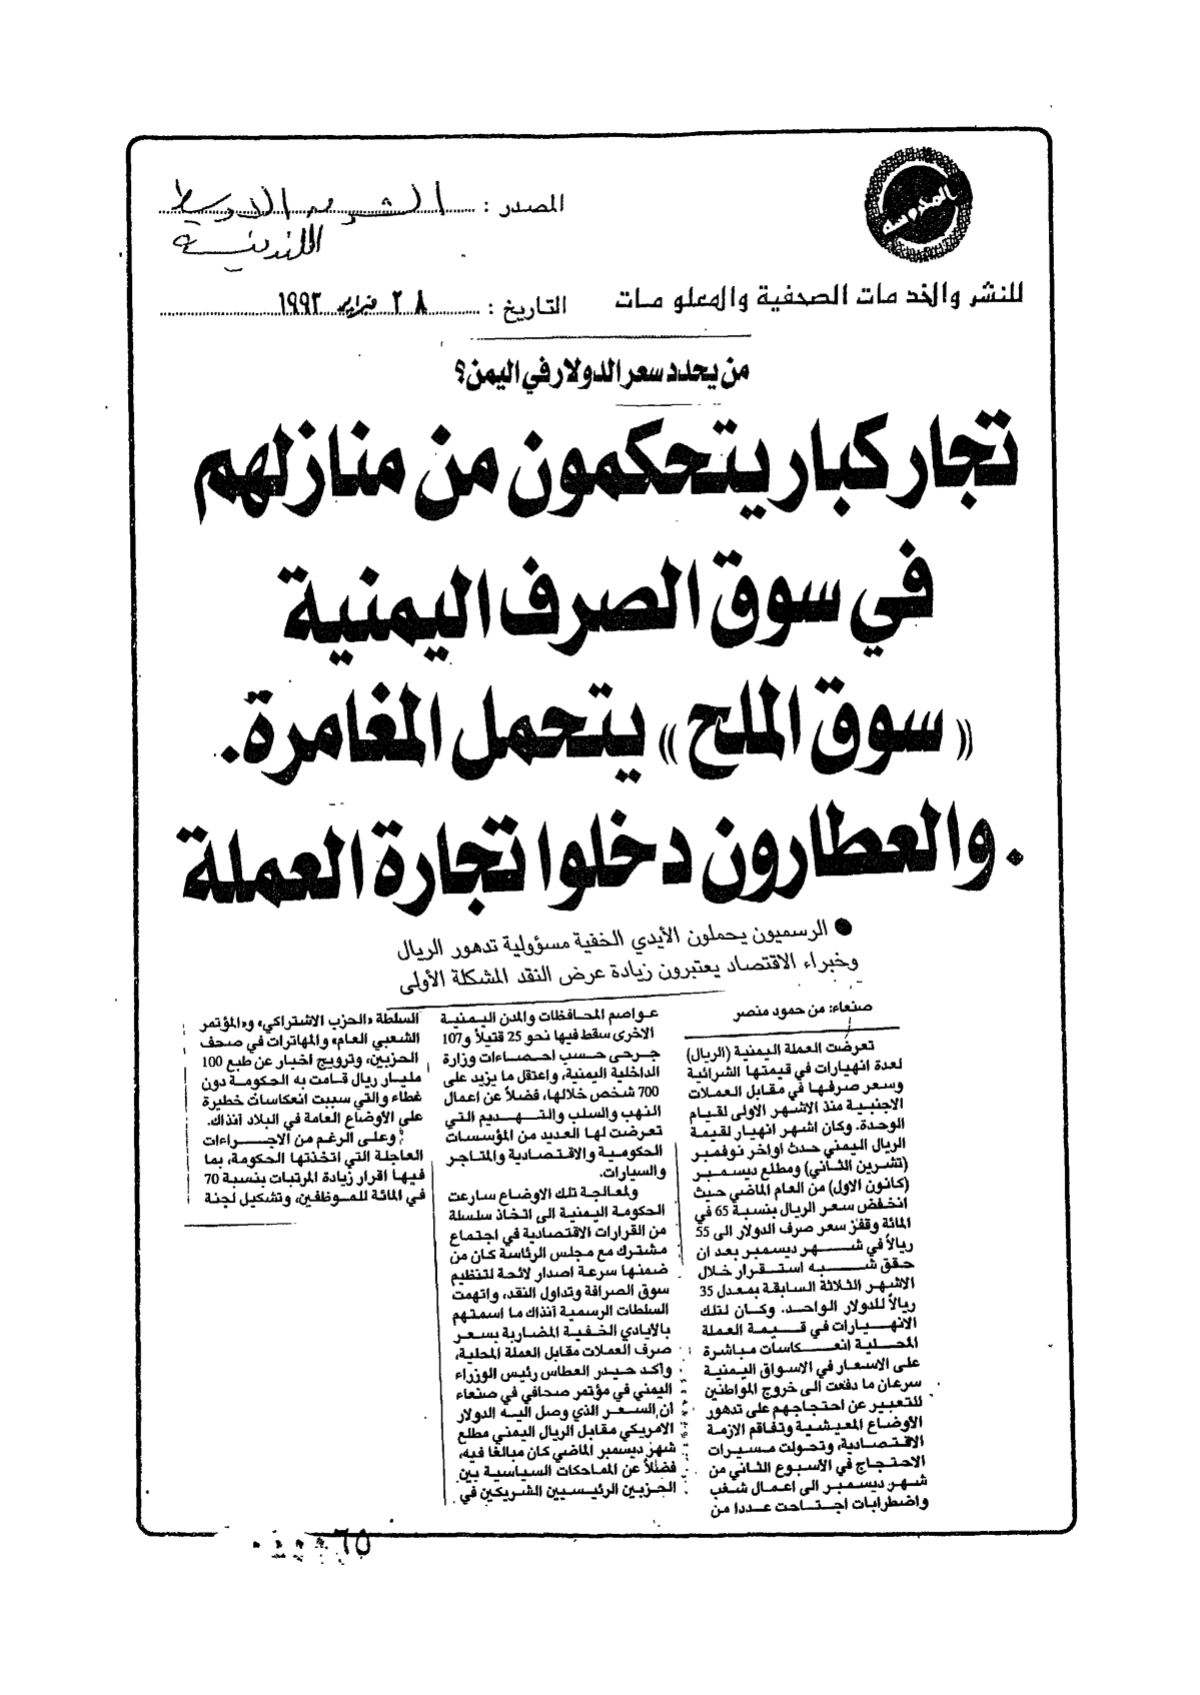 المدوسة
المصدر : الشرق الاوسط
اللندنية
للنشر والخدمات الصحفية والمعلومات
التاريخ : ٢٨ فبراير ١٩٩٣
من يحدد سعر الدولار في اليمن؟
تجار كبار يتحكمون من منازلهم
في سوق الصرف اليمنية
«سوق الملح» يتحمل المغامرة.
. والعطارون دخلوا تجارة العملة
● الرسميون يحملون الأيدي الخفية مسؤولية تدهور الريال
وخبراء الاقتصاد يعتبرون زيادة عرض النقد المشكلة الأولى
صنعاء: من حمود منصر
تعرضت العملة اليمنية (الريال)
لعدة انهيارات في قيمتها الشرائية
وسعر صرفها في مقابل العملات
الاجنبية منذ الاشهر الاولى لقيام
الوحدة. وكان اشهر انهيار لقيمة
الريال اليمني حدث اواخر نوفمبر
(تشرين الثاني) ومطلع ديسمبر
(كانون الاول) من العام الماضي حيث
انخفض سعر الريال بنسبة 65 في
المائة وقفز سعر صرف الدولار الى 55
ريالاً في شهر ديسمبر بعد ان
حقق شبه استقرار خلال
الاشهر الثلاثة السابقة بمعدل 35
ريالاً للدولار الواحد. وكان لتلك
الانهيارات في قيمة العملة
المحلية انعكاسات مباشرة
على الاسعار في الاسواق اليمنية
سرعان ما دفعت الى خروج المواطنين
للتعبير عن احتجاجهم على تدهور
الأوضاع المعيشية وتفاقم الازمة
الاقتصادية، وتحولت مسيرات
الاحتجاج في الاسبوع الثاني من
شهر ديسمبر الى اعمال شغب
واضطرابات اجتاحت عددا من
عواصم المحافظات والمدن اليمنية
الاخرى سقط فيها نحو 25 قتيلاً و107
جرحى حسب احصاءات وزارة
الداخلية اليمنية، واعتقل ما يزيد على
700 شخص خلالها، فضلاً عن اعمال
النهب والسلب والتهديم التي
تعرضت لها العديد من المؤسسات
الحكومية والاقتصادية والمتاجر
والسيارات.
ولمعالجة تلك الاوضاع سارعت
الحكومة اليمنية الى اتخاذ سلسلة
من القرارات الاقتصادية في اجتماع
مشترك مع مجلس الرئاسة كان من
ضمنها سرعة اصدار لائحة لتنظيم
سوق الصرافة وتداول النقد، واتهمت
السلطات الرسمية آنذاك ما اسمتهم
بالأيادي الخفية المضاربة بسعر
صرف العملات مقابل العملة المحلية،
وأكد حيدر العطاس رئيس الوزراء
اليمني في مؤتمر صحافي في صنعاء
ان السعر الذي وصل اليه الدولار
الامريكي مقابل الريال اليمني مطلع
شهر ديسمبر الماضي كان مبالغا فيه،
فضلاً عن المماحكات السياسية بين
الحزبين الرئيسيين الشريكين في
السلطة «الحزب الاشتراكي» و«المؤتمر
الشعبي العام» والمهاترات في صحف
الحزبين، وترويج اخبار عن طبع 100
مليار ريال قامت به الحكومة دون
غطاء والتي سببت انعكاسات خطيرة
على الاوضاع العامة في البلاد آنذاك.
وعلى الرغم من الاجراءات
العاجلة التي اتخذتها الحكومة، بما
فيها اقرار زيادة المرتبات بنسبة 70
في المائة للموظفين، وتشكيل لجنة
٦٥